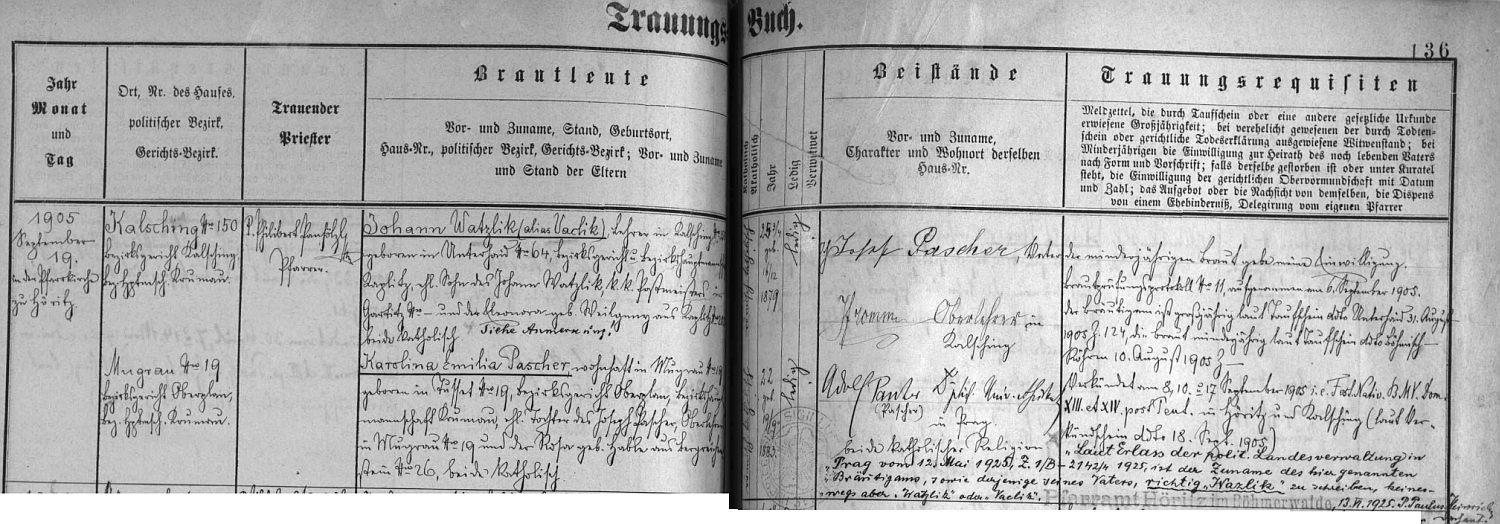 Trauungs-Buch.
136
Jahr
Monat
und
Tag
Ort, Nr. des Hauses,
politischer Bezirk,
Gerichts-Bezirk.
Trauender
Priester
Brautleute
Vor- und Zuname, Stand, Geburtsort,
Haus-Nr., politischer Bezirk, Gerichts-Bezirk; Vor- und Zuname
und Stand der Eltern
Katholisch
Akatholisch
Jahr
Ledig
Verwitwet
Beistände
Vor- und Zuname,
Charakter und Wohnort derselben
Haus-Nr.
Trauungsrequisiten
Meldzettel, die durch Taufschein oder eine andere gesetzliche Urkunde
erwiesene Großjährigkeit; bei verehelicht gewesenen der durch Todten-
schein oder gerichtliche Todeserklärung ausgewiesene Witwenstand; bei
Minderjährigen die Einwilligung zur Heirath des noch lebenden Vaters
nach Form und Vorschrift; falls derselbe gestorben ist oder unter Kuratel
steht, die Einwilligung der gerichtlichen Obervormundschaft mit Datum
und Zahl; das Aufgebot oder die Nachsicht von demselben, die Dispens
von einem Ehehinderniß, Delegirung vom eigenen Pfarrer
1905
September
19.
in der Pfarrkirche
zu Höritz
Kalsching No 150
Bezirksgericht Kalsching
Bez. Hptmsch. Krumau.
Mugrau No 19
Bezirksgericht Oberplan,
Bez. Hptmsch. Krumau.
P. Philibert
Pfarrer.
Johann Watzlik (alias Vaclik), Lehrer in Kalsching
geboren in Unterhaid No 64, Bezirksgericht u. Bezirkshauptmannschaft
Kaplitz, ehl. Sohn des Johann Watzlik k. k. Postmeisters in
No – und der Eleonora geb. aus Kaplitz
beide katholisch Siehe Anmerkung!
Karolina Emilia Pascher, wohnhaft in Mugrau No 19
geboren in Tusset No 19, Bezirksgericht Oberplan, Bezirkshaupt-
mannschaft Krumau, ehl. Tochter des Joseph Pascher, Oberlehrer
in Mugrau No 19 und der Rosa geb. Hable aus Bergreichen-
stein No 26, beide katholisch
25 3/4
1879
ledig
22
1883
ledig
Josef Pascher, Vater der minderjährigen Braut gebe meine Einwilligung.
Fromm Oberlehrer in
Kalsching
Adolf
(Pascher) in Prag.
beide katholischer Religion
Brautprüfungsprotokoll No 11, aufgenommen am 6. September 1905.
der Bräutigam ist großjährig laut Taufschein ddto Unterhaid 31. August
1905 Z. 121, die Braut minderjährig laut Taufschein ddto Böhmisch-
Röhren 10. August 1905
Verkündet am 8., 10. u. 17 September 1905 i. e. Fest. Nativ. B.M.V. Dom.
XIII. et XIV. post Pent. in Höritz und Kalsching (laut Ver-
kündschein ddto 18. Sept. 1905)
"Laut Erlass der polit. Landesverwaltung in
Prag vom 12. Mai 1925, Z. 1/B – 2142/4 1925, ist der Zuname des hier genannten
Bräutigams, sowie derjenige seines Vaters, richtig "Wazlik" zu schreiben, keines-
wegs aber "Watzlik" oder "Vaclik".
Pfarramt Höritz im Böhmerwalde, 13. VI. 1925. P. Paulus Heinrich